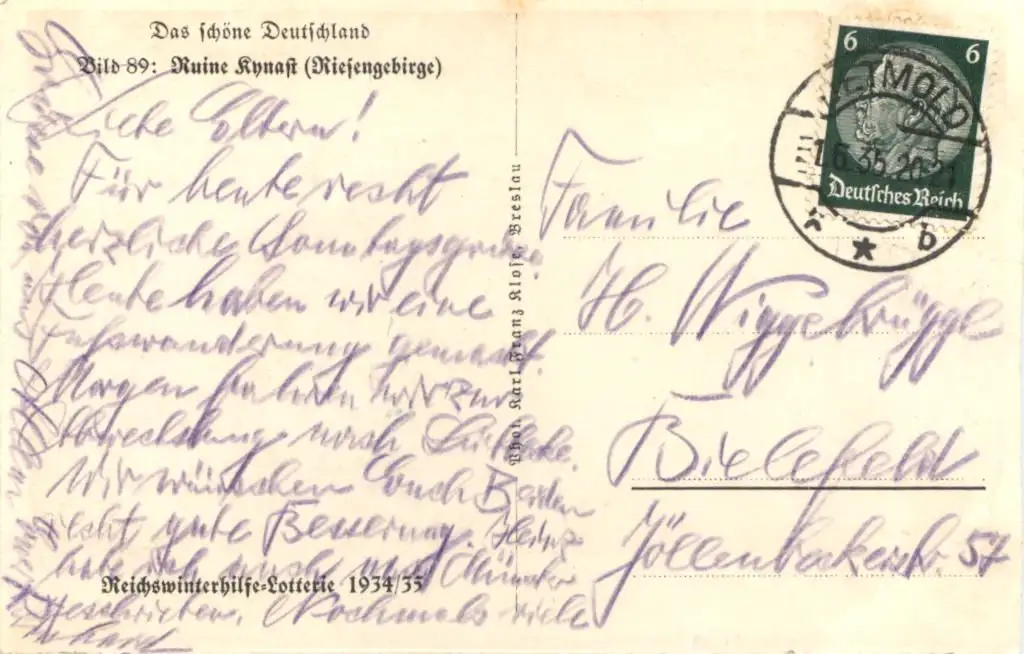 Das schöne Deutschland
Bild 89: Ruine Kynast (Riesengebirge)
Liebe Eltern!
Für heute recht
herzliche Sonntagsgrüße.
Heute haben wir eine
Fußwanderung gemacht.
Morgen fahren wir zur
Abrechnung nach
Wir wünschen Euch Beiden
recht gute Besserung. Heinz
habe ich auch nach Münster
geschrieben. Nochmals viele
Grüße
Reichswinterhilfe-Lotterie 1934/35
Phot. Karl Franz Klose, Breslau
6 6
Deutsches Reich
DETMOLD
1.6.35.20-21
* * b
Familie
H. Wiggebrügge
Bielefeld
Jöllenbeckerstr. 57